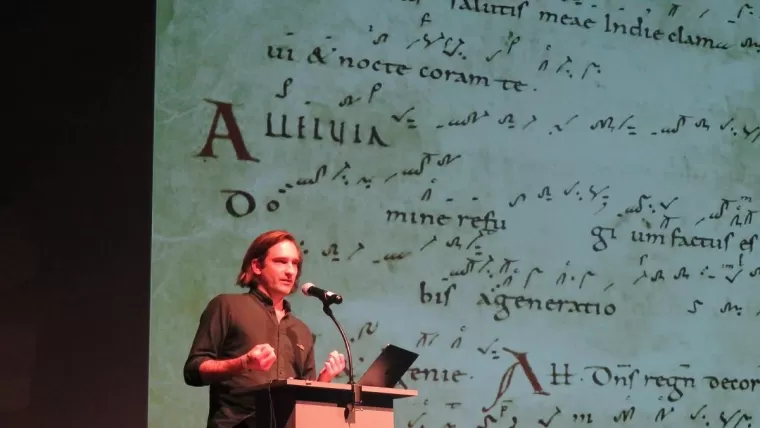 salutis meae In die clama
ui & nocte coram te.
Alleluia
Domine refugium factus es
bis a generatio
enie. All. Dns regn decor